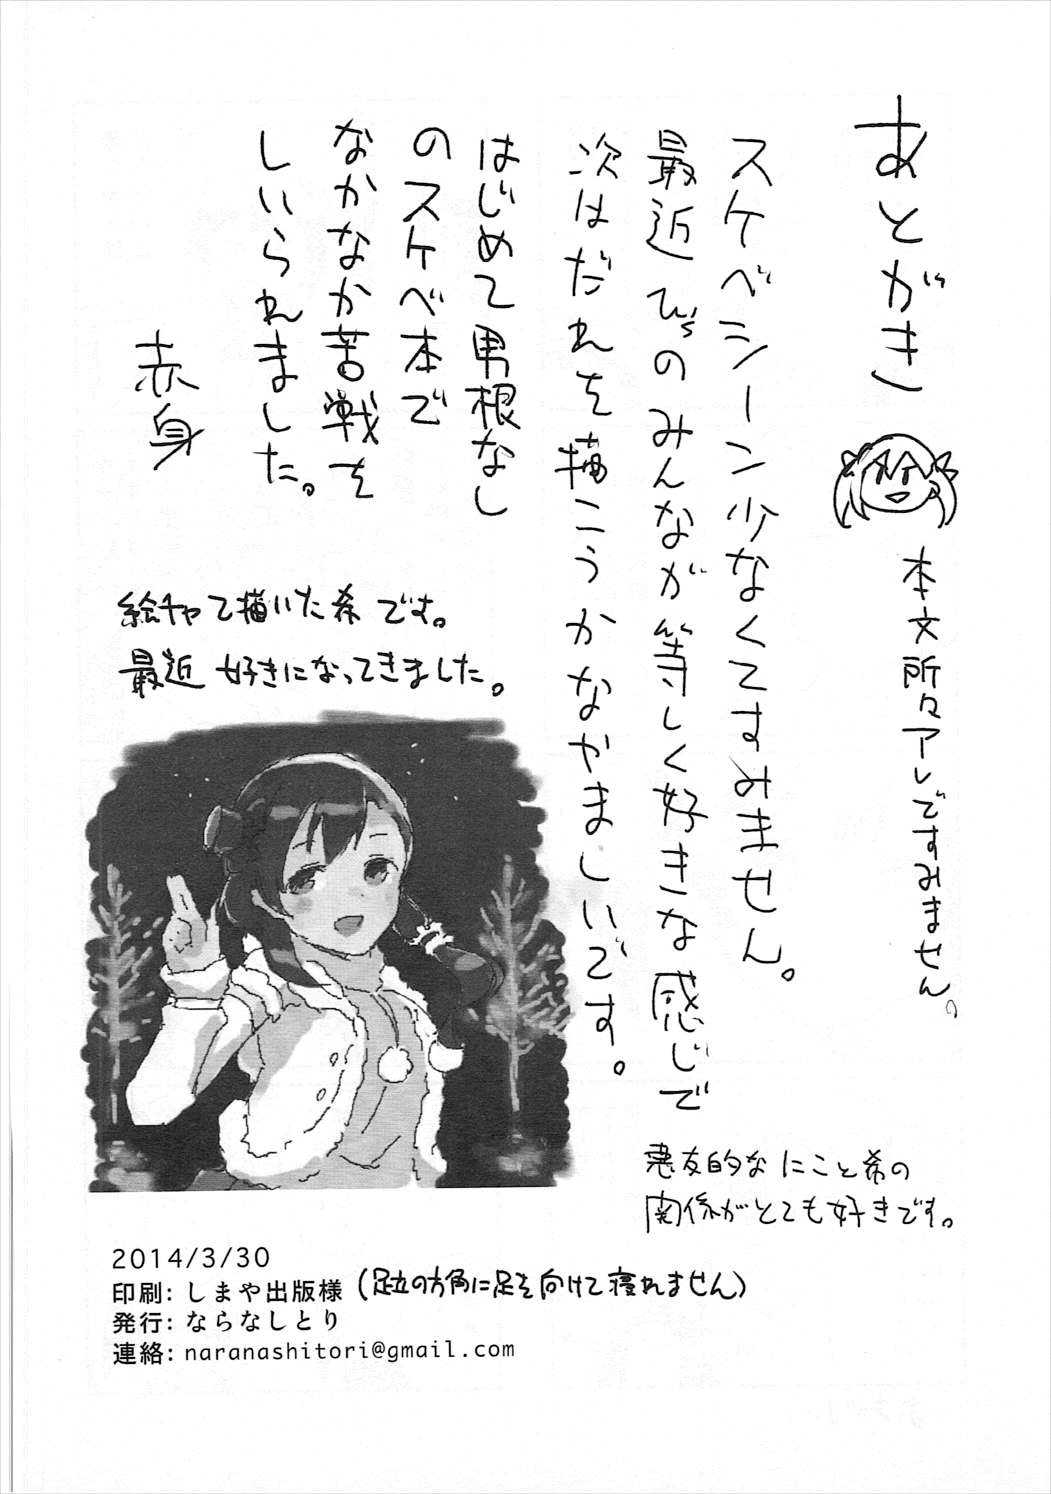 あとがき
本文所々アレですみません。
スケベシーン少なくてすみません。
最近μ'sのみんなが等しく好きな感じで
次はだれを描こうかなやましいです。
悪友的なにこと希の
関係がとても好きです。
はじめて男根なし
のスケベ本で
なかなか苦戦を
しいられました。
赤身
絵チャで描いた希です。
最近好きになってきました。
2014/3/30
印刷: しまや出版様(足立の方角に足を向けて寝れません)
発行: ならなしとり
連絡: naranashitori@gmail.com